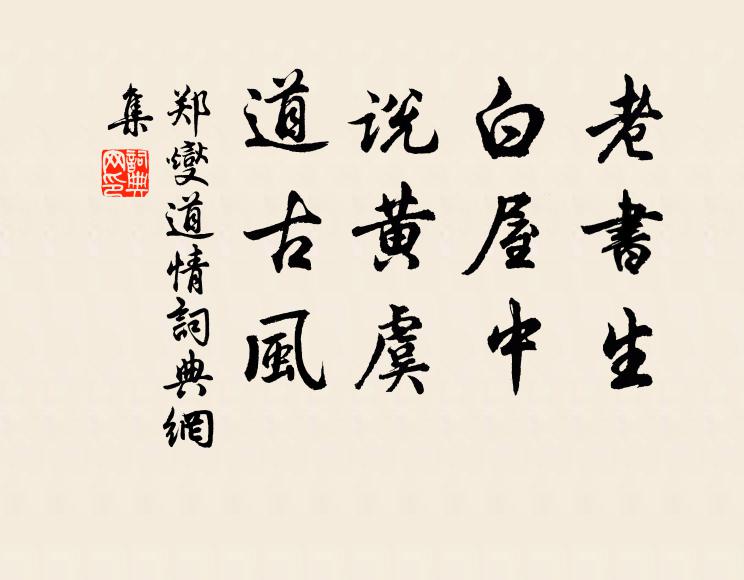 老書生
白屋中
説黄虞
道古風
郑燮道情詞典網
集
詞典網印